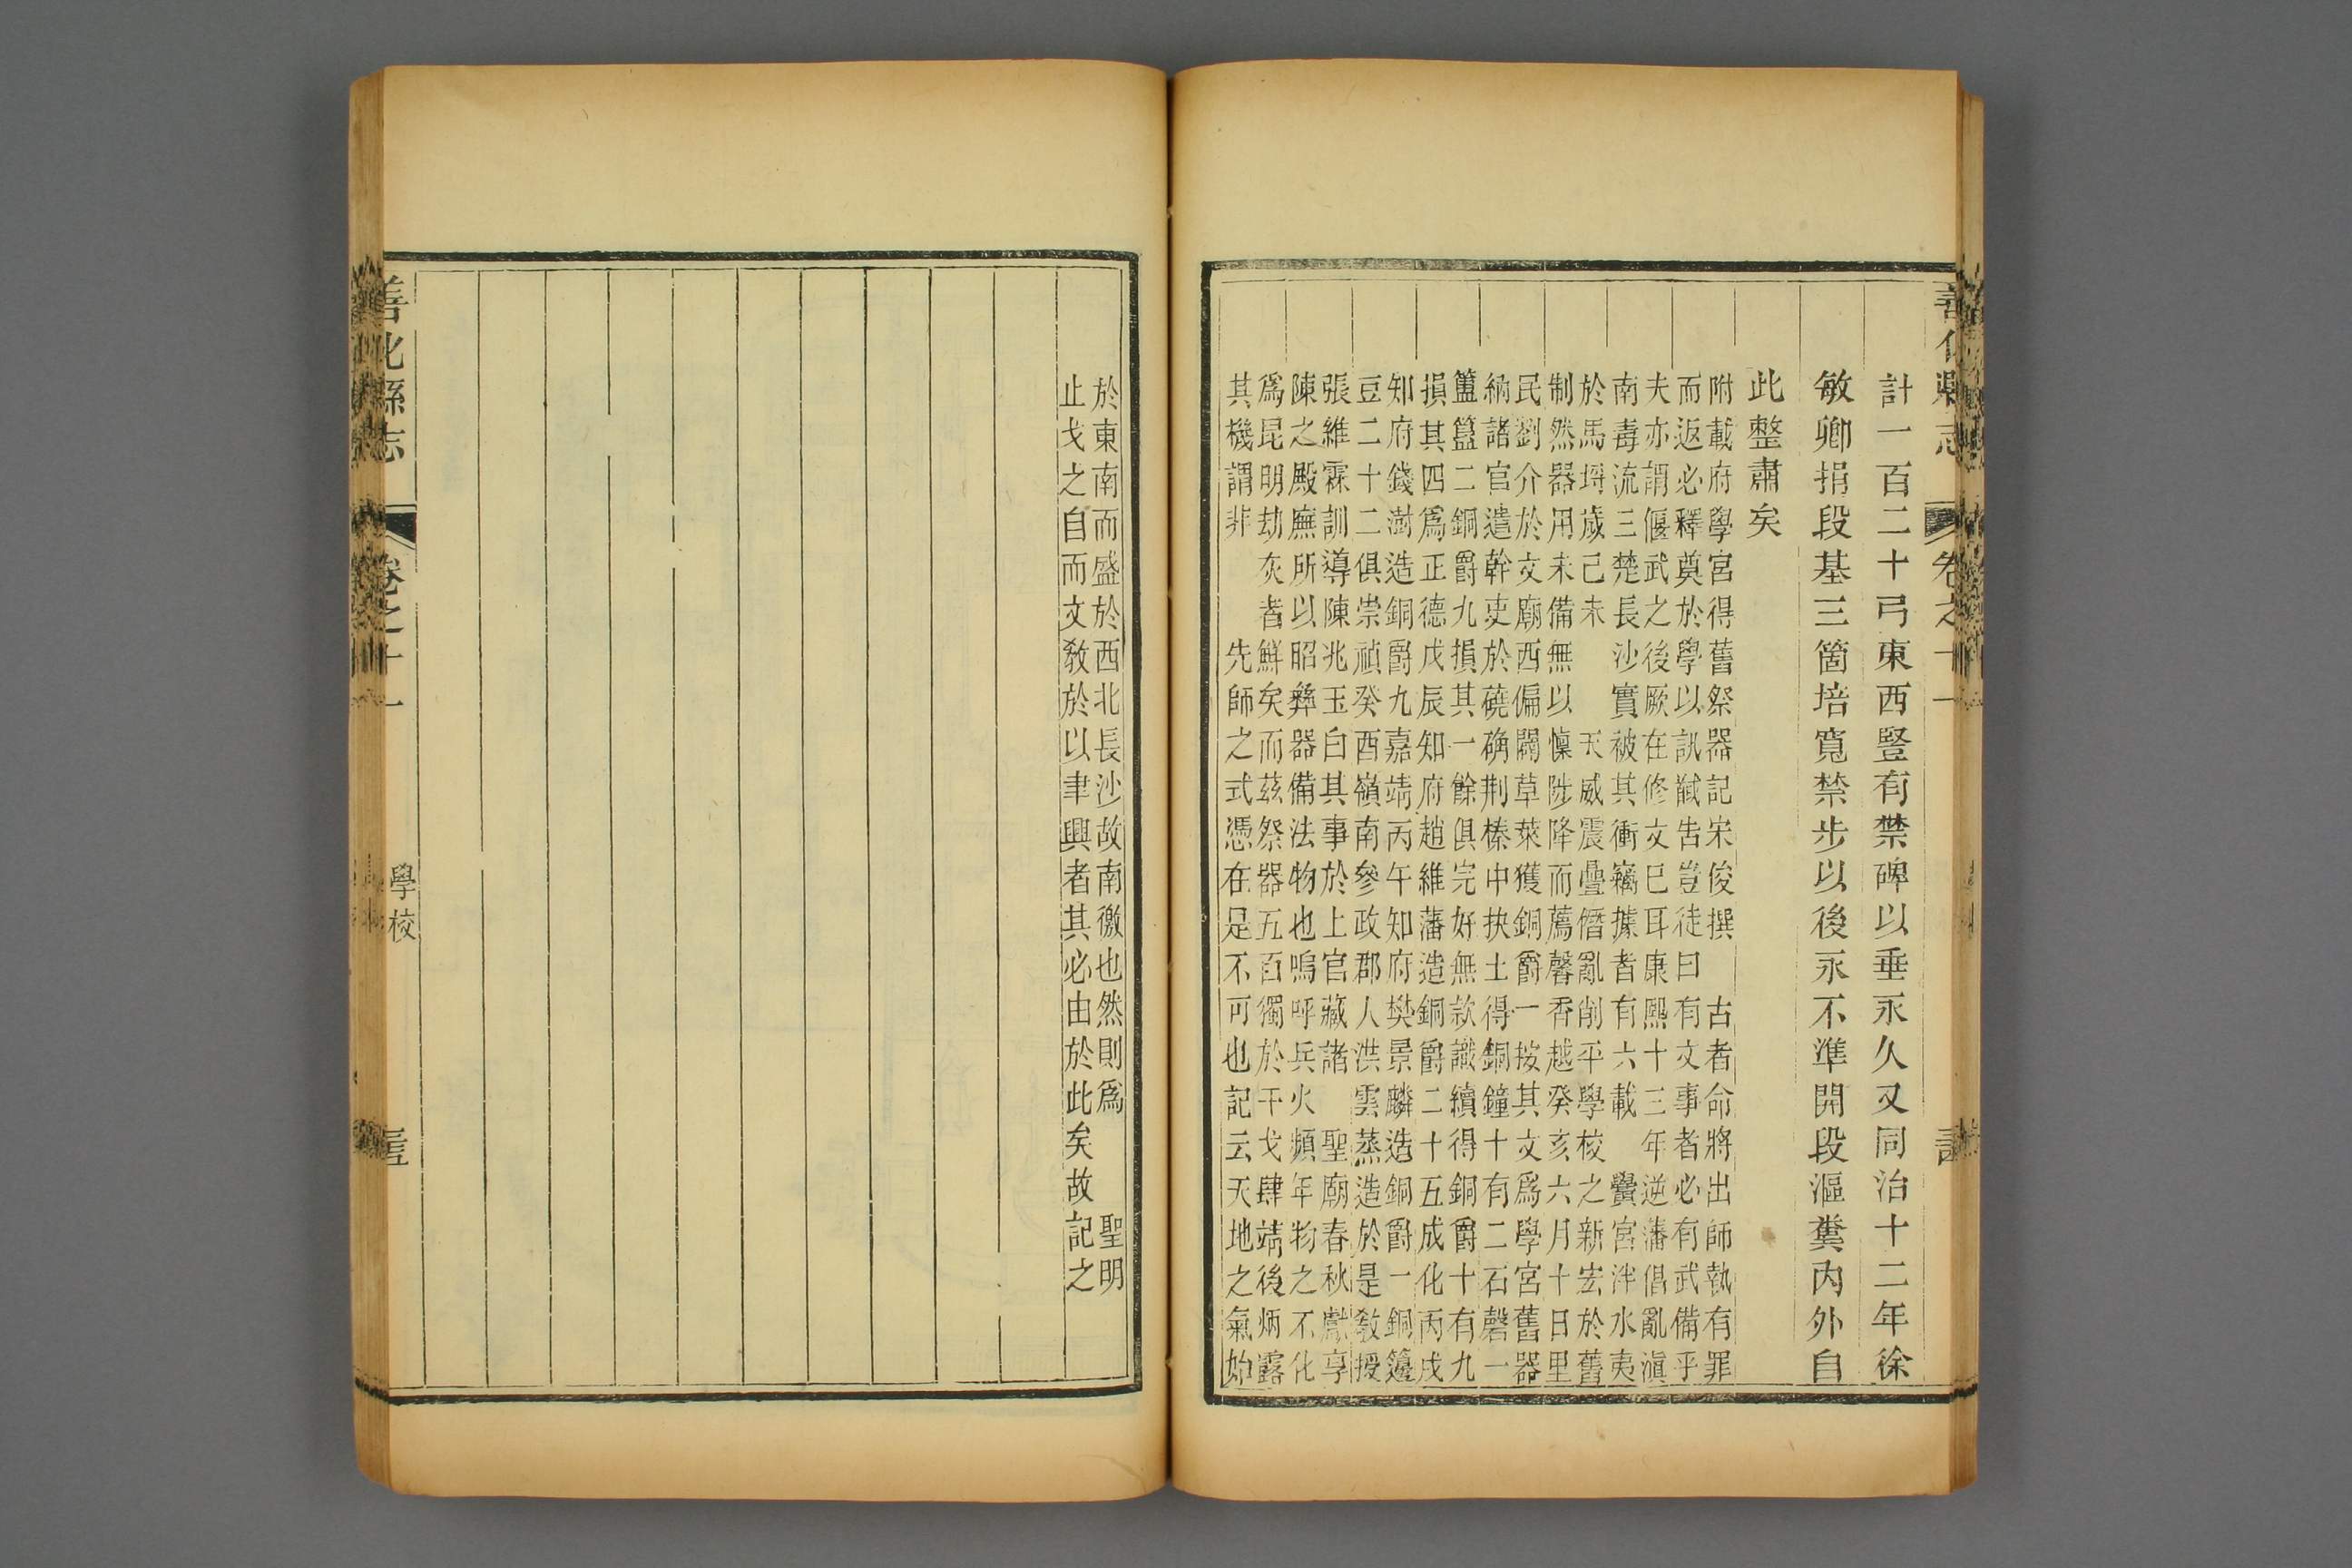 計一百二十弓東西豎有禁碑以垂永久又同治十二年徐
敏卿捐段基三箇培寬禁步以後永不準開段漚糞內外自
此整肅矣
附載府學宮得舊祭器記宋俊撰 古者命將出師執有罪
而返必釋奠於學以訊馘吿豈徒曰 有文事者必有武備乎
夫亦謂偃武之後厥在修文已耳康熙十三年逆藩倡亂滇
南毒流三楚長沙實被其衝竊據者有六載 黌宮泮水夷
於馬埒歲己未 天威震疊僭亂削平學校之新宏於舊
制然器用未備無以 愼陟降而薦馨香越癸亥六月十日里
民劉介於文廟西偏闢草萊獲銅爵一按其文爲學宮舊器
納諸官遣幹吏於磽确荆榛中抉土得銅鐘十有二石磬一
簠簋二銅爵九損其一餘俱完好無款識續得銅爵十有九
損其四爲正德戊辰知府趙維藩造銅爵二十五成化丙戌
知府錢澍造銅爵九嘉靖丙午知府樊景麟造銅爵一銅籩
豆二十二俱崇禎癸酉嶺南參政郡人洪雲蒸造於是敎授
張維霖訓導陳兆玉白其事於上官藏諸 聖廟春秋獻享
陳之殿廡所以昭彝器備法物也嗚呼兵火頻年物之不化
爲昆明劫灰者鮮矣而茲祭器五百獨於干戈肆靖後炳露
其機謂非 先師之式憑在是不可也記云天地之氣始
於東南而盛於西北長沙故南徼也然則爲 聖明
止戈之自而文敎於以聿興者其必由於此矣故記之
善化縣志
卷之十一
學校